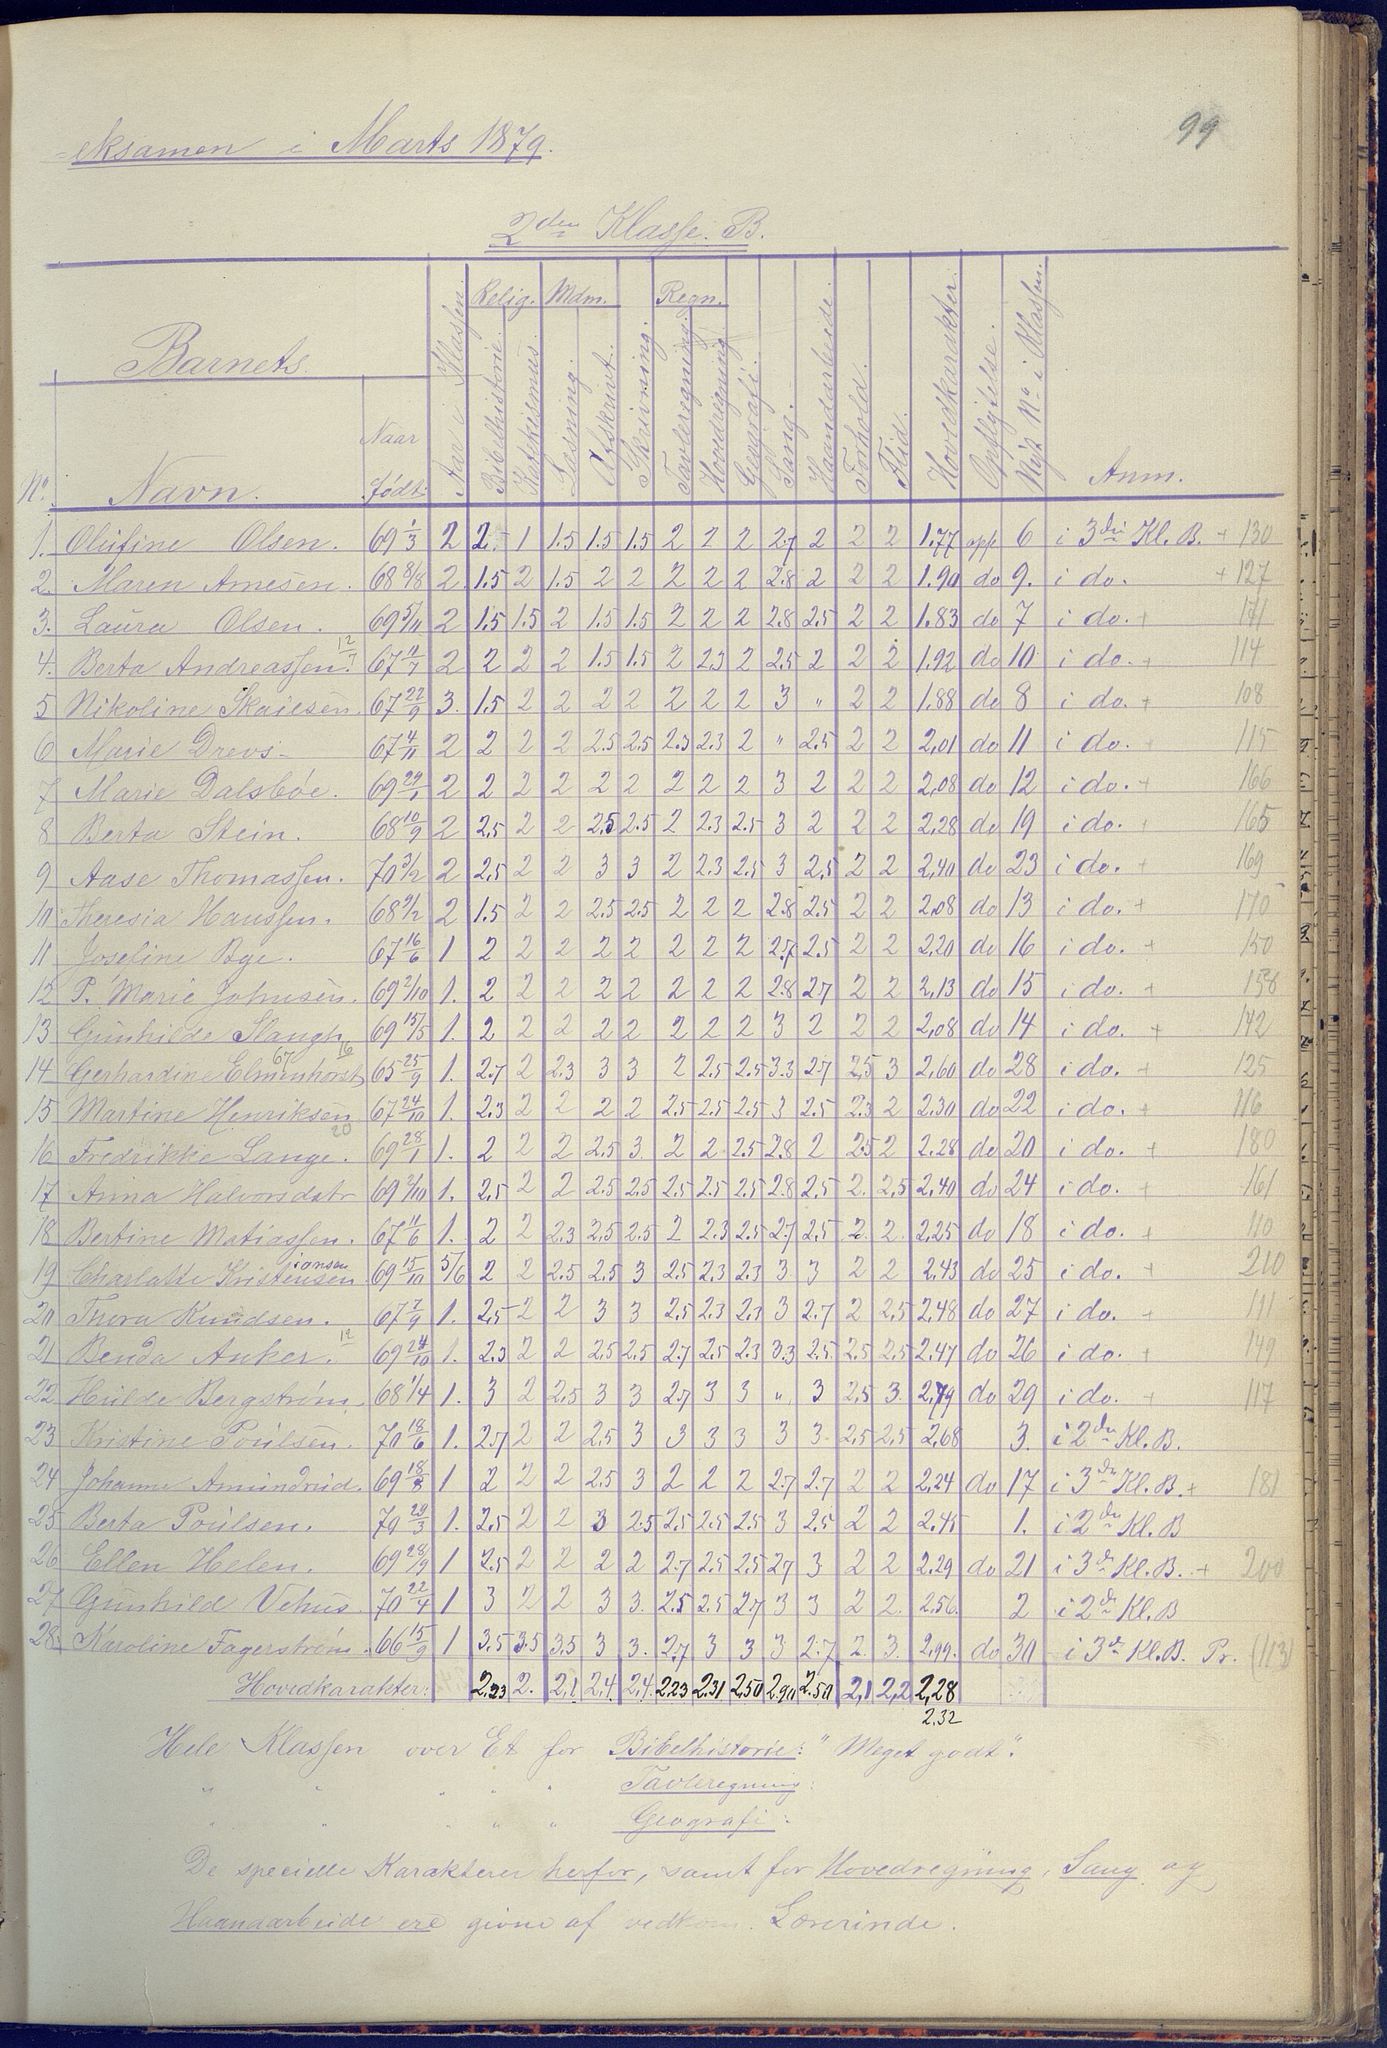 99
=eksamen i Marts 1879.
2den Klasse. B.
Barnets Relig. Mdm. Regn.
No. Navn. Naar født. Aar i Klassen. Bibelhistorie. Katekismus. Læsning. Afskrivt. Skrivning. Tavleregning. Hovedregning. Geografi. Sang. Haandarbeide. Forhold. Flid. Hovedkarakter. Opflytelse. Nyt No i Klassen. Anm.
1. Olufine Olsen. 69 1/3 2 2. 1 1.5 1.5 1.5 2 2 2 2.7 2 2 2 1.77 opfl 6 i 3die Kl. B. + 130
2. Maren Arnesen. 68 8/8 2 1.5 2 1.5 2 2 2 2 2 2.8 2 2 2 1.90 do 9. i do. + 127
3. Laura Olsen. 69 5/11 2 1.5 1.5 2 1.5 1.5 2 2 2 2.8 2.5 2 2 1.83 do 7 i do. + 171
4. Berta Andreassen. 12/7 67 11/7 2 2 2 2 1.5 1.5 2 2.3 2 2.5 2 2 2 1.92 do 10 i do. + 114
5 Nikoline Skailsen. 67 22/9 3. 1.5 2 2 2 2 2 2 2 3 " 2 2 1.88 do 8 i do. + 108
6 Marie Drevs 67 4/11 2 2 2 2 2.5 2.5 2.3 2.3 2 " 2.5 2 2 2,01 do 11 i do. + 115
7 Marie Dalsbøe. 69 29/1 2 2 2 2 2 2 2 2 2 3 2 2 2 2,08 do 12 i do. + 166
8 Berta Stein. 68 10/9 2 2,5 2 2 2.5 2.5 2 2.3 2.5 3 2 2 2 2,28 do 19 i do. + 165
9 Aase Thomassen. 70 3/2 2 2.5 2 2 3 3 2 2.3 2.5 3 2,5 2 2 2,40 do 23 i do. + 169
10 Theresia Hanssen. 68 9/2 2 1.5 2 2 2.5 2.5 2 2 2 2.8 2.5 2 2 2,08 do 13 i do. + 170
11 Joseline Bge. 67 16/6 1 2 2 2 2 2 2 2 2 2.7 2.5 2 2 2,20 do 16 i do. + 150
12 P. Marie Johnsen. 69 2/10 1. 2 2 2 2 2 2 2 2 2.8 2.7 2 2 2,13 do 15 i do. + 158
13 Gunhilde Slangh 69 15/5 1. 2 2 2 2 2 2 2 2 3 2 2 2 2,08 do 14 i do. + 172
14 Gerhardine Elmenhorst 67 16 65 25/9 1. 2.7 2 2.3 3 3 2 2.5 2.5 3.3 2.7 2,5 3 2,60 do 28 i do. + 125
15 Martine Henriksen 67 24/10 1. 2.3 2 2 2 2 2.5 2.5 2.5 3 2.5 2.3 2 2.30 do 22 i do. + 116
16 Fredrikke Lange. 20 69 28/1 1. 2 2 2 2.5 3. 2 2 2.5 2.8 2 2.5 2 2.28 do 20 i do. + 180
17 Anna Halvorsdatr 69 2/10 1. 2,5 2 2 2.5 2.5 2.5 2.5 2.5 2.8 2,5 2. 2,5 2,40 do 24 i do. + 161
18 Bertine Matiassen. 67 11/6 1. 2 2 2.3 2,5 2.5 2 2.3 2.5 2.7 2,5 2. 2. 2,25 do 18 i do. + 110
19 Charlatte Kristensen iansen 69 15/10 5/6 2 2 2.5 2.5 3 2.5 2.3 2.3 3 3 2 2 2.43 do 25 i do. + 210
20 Thora Knudsen. 67 7/9 1. 2,5 2 2 3 3 2.5 2.3 2.3 3 2.7 2 2,5 2.48 do 27 i do. + 111
21 Benda Anker. 12 69 24/10 1. 2.3 2 2 2.5 2.5 2.7 2.5 2.3 3.3 2.5 2.5 2.5 2.47 do 26 i do. + 149
22 Hulde Bergstrøm. 68 1/4 1. 3 2 2.5 3 3 2.7 3 3 " 3 2,5 3. 2,79 do 29 i do. + 117
23 Kristine Poulsen. 70 18/6 1. 2.7 2 2 2,5 3 3 3 3 3 3. 2,5 2,5 2,68 3. i 2den Kl. B.
24 Johanne Amundrud. 69 18/8 1 2 2 2 2.5 3 2 2 2 2.7 2.7 2 2 2,24 do 17 i 3die Kl. B. + 181
25 Berta Poulsen. 70 29/3 1. 2.5 2 2 3 2.5 2.5 2.5 2.5 3 2.5 2 2 2.45 1. i 2den Kl. B
26 Ellen Helen. 69 28/9 1 2.5 2 2 2 2 2.7 2.5 2.5 2.7 3 2 2 2.29 do 21 i 3de Kl. B. + 200
27 Gunhild Vehus. 70 22/4 1 3 2 2 3 3. 2.5 2.5 2.7 3 3 2 2. 2.56. 2 i 2de Kl. B
28. Karoline Fagerstrøm. 66 15/9 1 3.5 3.5 3.5 3 3. 2.7 3 3 3 2.7 2. 3. 2,99. do 30 i 3de Kl. B. Pr. (113)
Hovedkarakter: 2,23 2. 2,1. 2,4. 2,4. 2.23 2.31 2,50 2.90 2.50 2,1 2,2 2,28
2.32
Hele Klassen over Et for Bibelhistorie: "Meget godt".
" " " " " Tavleregning:
" " " " " Geografi:
De specielle Karakterer herfor, samt for Hovedregning, Sang og
Haandarbeide ere givne af vedkom. Lærerinde.